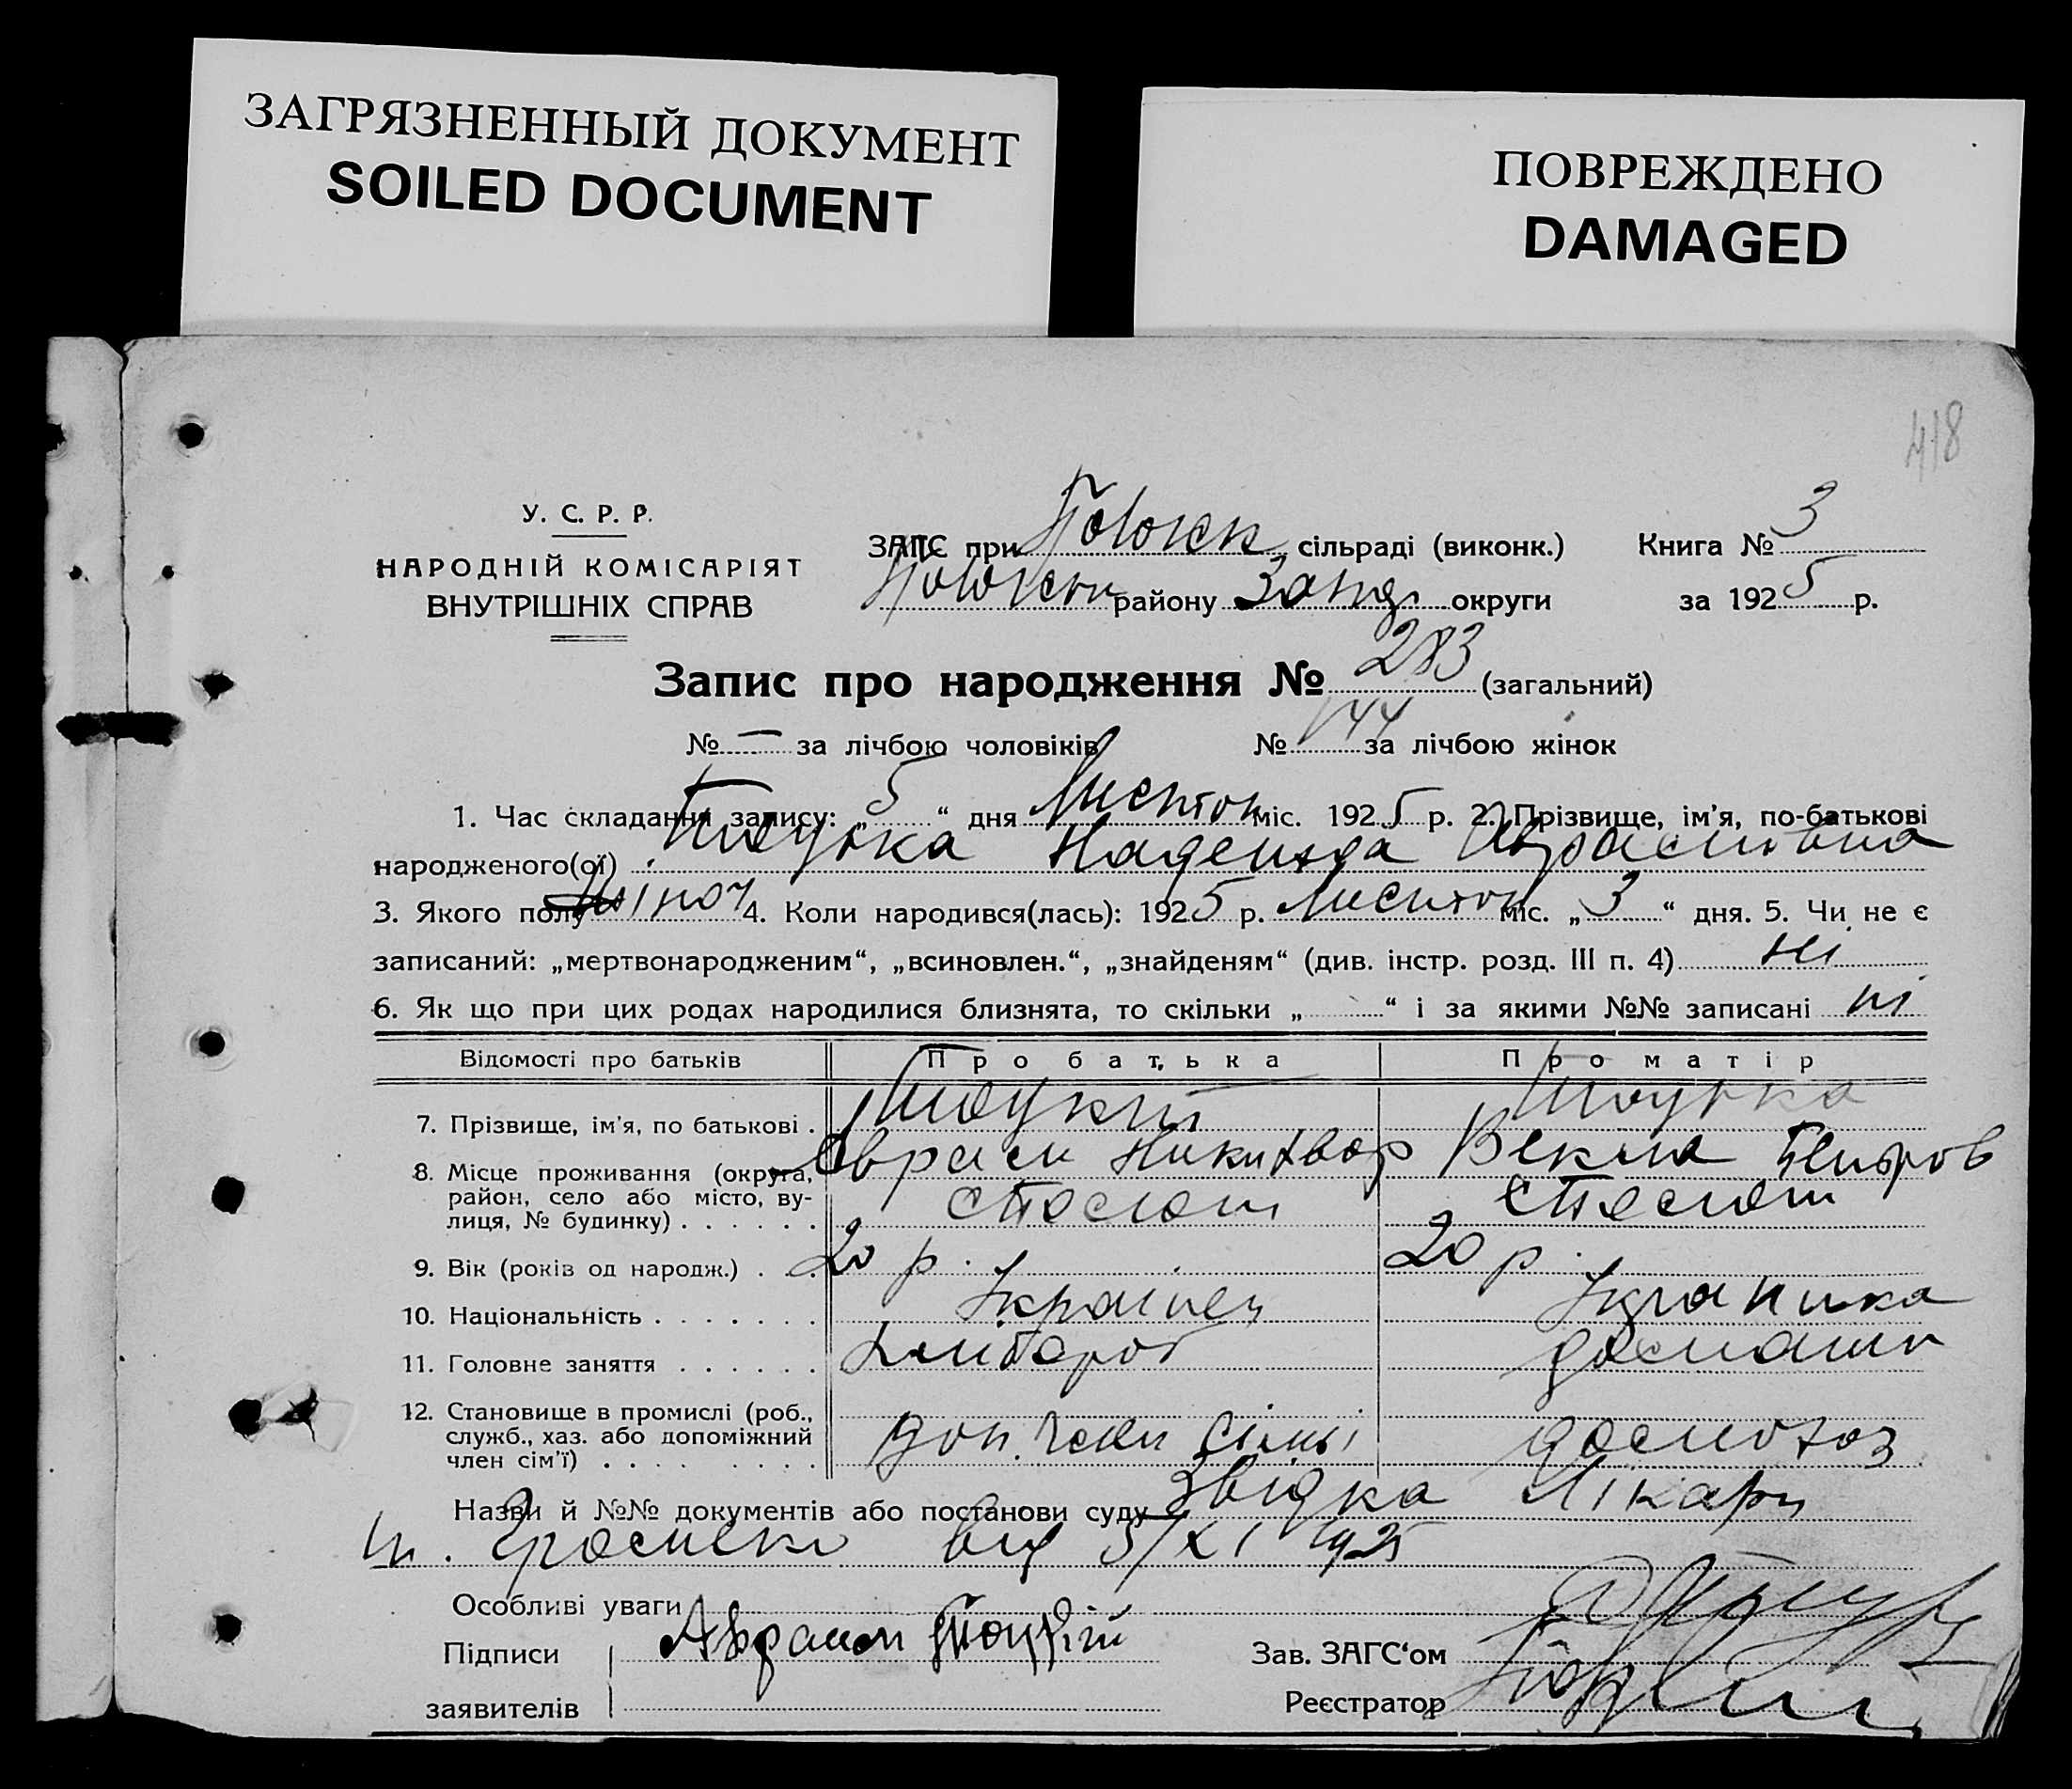 ЗАГРЯЗНЕННЫЙ ДОКУМЕНТ
SOILED DOCUMENT
ПОВРЕЖДЕНО
DAMAGED
418
У. С. Р. Р.
НАРОДНІЙ КОМІСАРІЯТ
ВНУТРІШНІХ СПРАВ
ЗАГС при сільраді (виконк.) Книга № 3
району округи за 1925 р.
Запис про народження № 283 (загальний)
№ — за лічбою чоловіків № 144 за лічбою жінок
1. Час складання запису: „ 5 “ дня Листоп міс. 1925 р. 2. Прізвище, ім'я, по-батькові
народженого(ої) Надежда Аврамівна
3. Якого полу жіноч 4. Коли народився(лась): 1925 р. Листоп міс. „ 3 “ дня. 5. Чи не є
записаний: „мертвонародженим“, „всиновлен.“, „знайденям“ (див. інстр. розд. III п. 4) ні
6. Як що при цих родах народилися близнята, то скільки „ “ і за якими №№ записані ні
Відомості про батьків Про батька Про матір
7. Прізвище, ім'я, по батькові .
Аврам Векла Петров
8. Місце проживання (округа, район, село або місто, вулиця, № будинку) . . . . . .
9. Вік (років од народж.) . . . 20 р. 20 р.
10. Національність . . . . . . . Українец Українка
11. Головне заняття . . . . . . Хлібороб домашн
12. Становище в промислі (роб., служб., хаз. або допоміжний член сім'ї) . . . . . . . . . доп. член сімьї домохоз
Назви й №№ документів або постанови суду Звідка Лікаря
від 5/XI 1925
Особливі уваги
Підписи Аврам Зав. ЗАГС'ом
заявителів Реєстратор